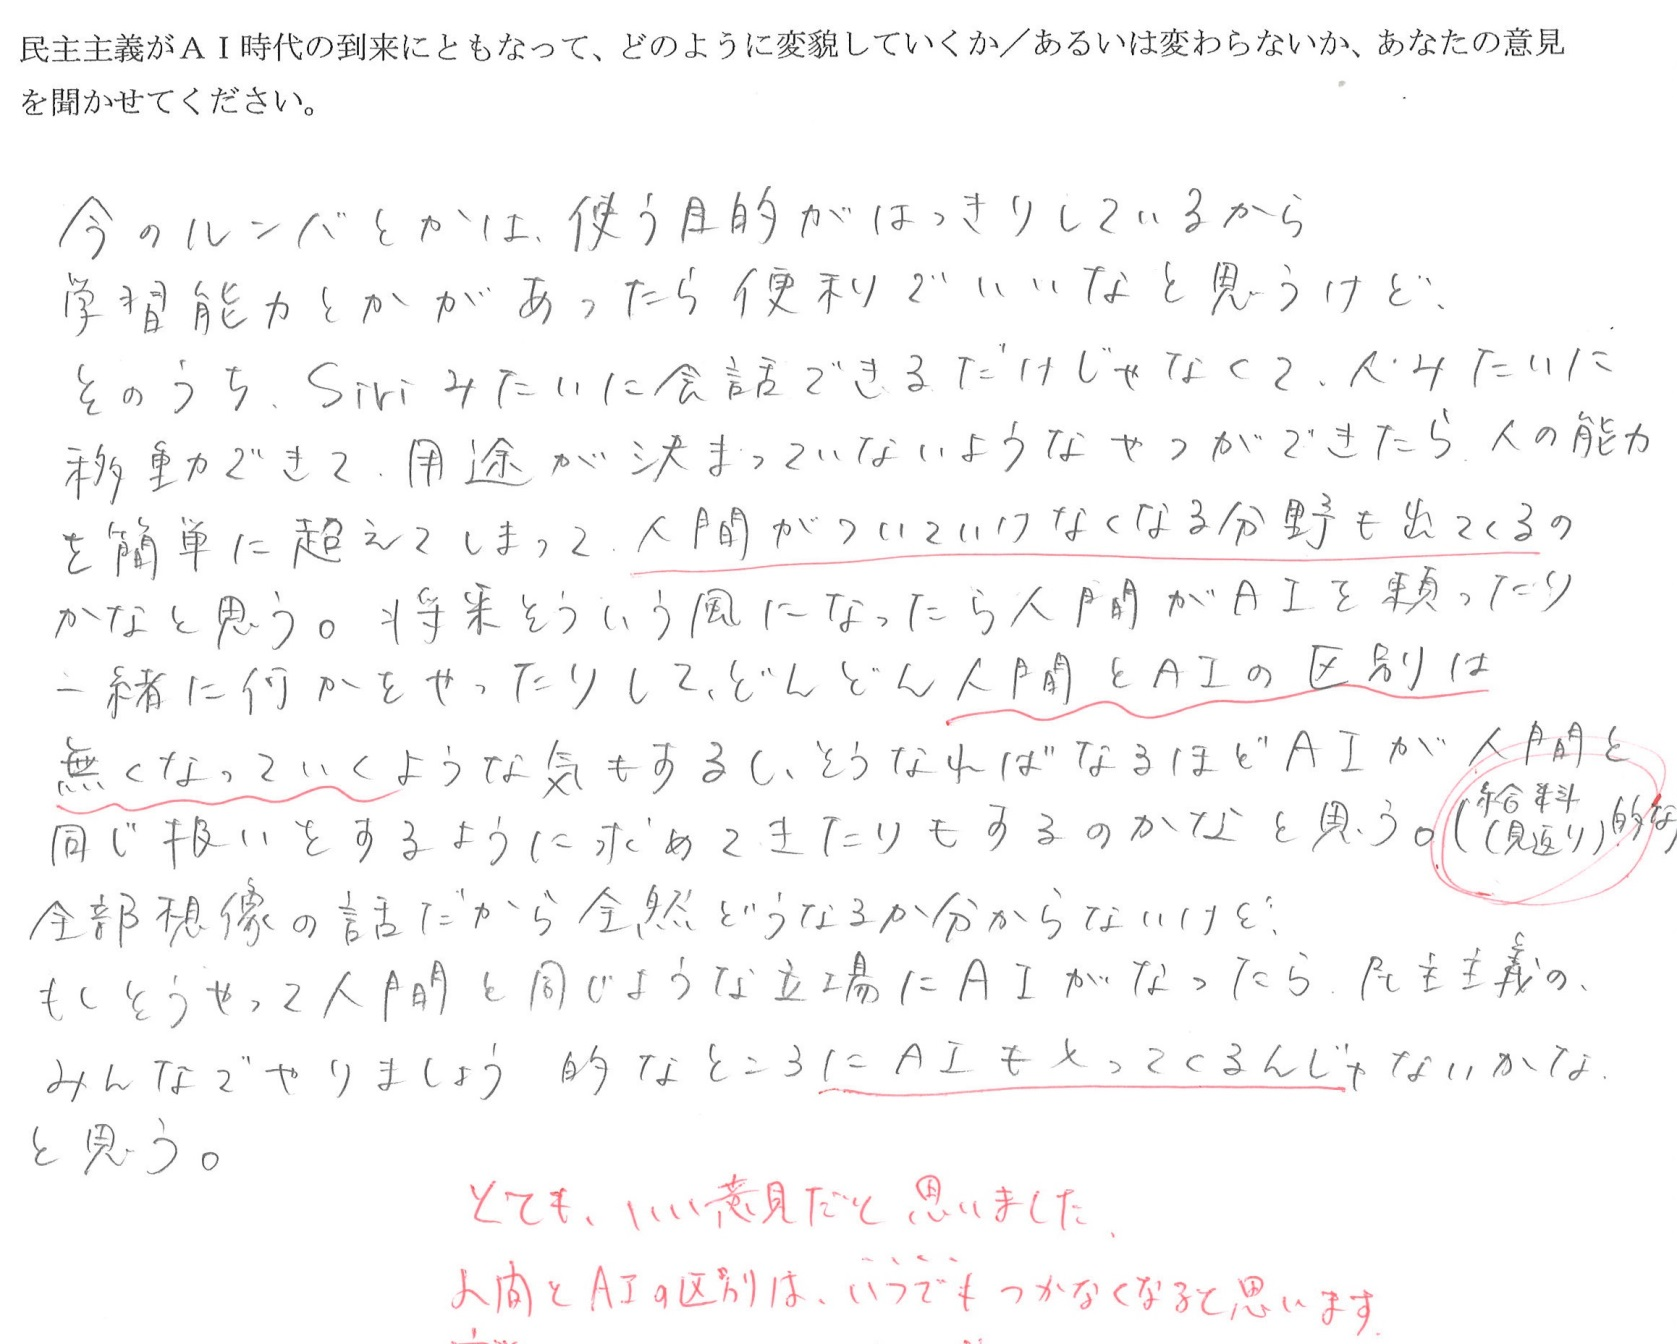 民主主義がＡＩ時代の到来にともなって、どのように変貌していくか／あるいは変わらないか、あなたの意見
を聞かせてください。
今のルンバとかは、使う目的がはっきりしているから
学習能力とかがあったら便利でいいなと思うけど、
そのうち、Siriみたいに会話できるだけじゃなくて、人みたいに
移動ができて、用途が決まっていないようなやつができたら、人の能力
を簡単に超えてしまって、人間がついていけなくなる分野も出てくるの
かなと思う。将来そういう風になったら人間がAIを頼ったり
一緒に何かをやったりして、どんどん人間とAIの区別は
無くなっていくような気もするし、そうなればなるほどAIが人間と
同じ扱いをするように求めてきたりもするのかなと思う。(給料(見返り)的な
全部想像の話だから全然どうなるか分からないけど、
もしそうやって人間と同じような立場にAIがなったら、民主主義の、
みんなでやりましょう的なところにAIも入ってくるんじゃないかな、
と思う。
とても、いい意見だと思いました、
人間とAIの区別は、いつでもつかなくなると思います。